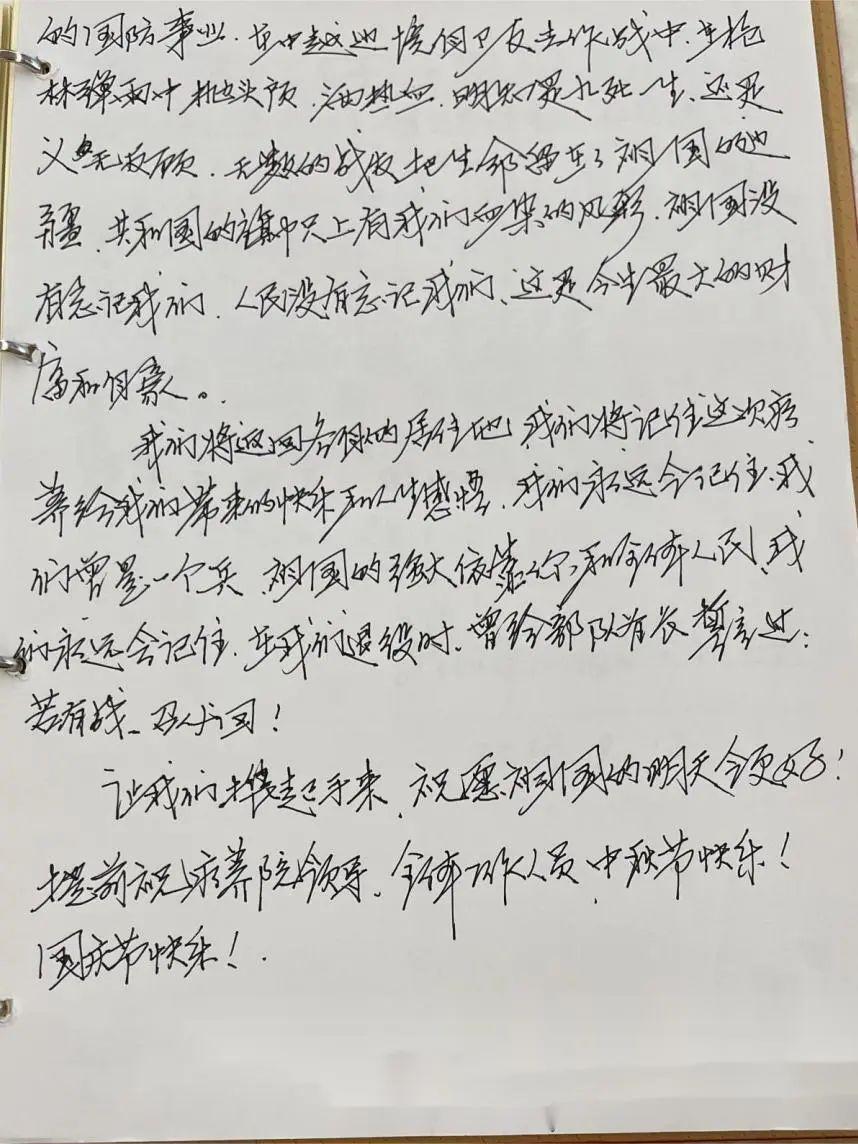 的国防事业.在中越边境自卫反击作战中.在枪
林弹雨中抛头颅.洒热血.明知是九死一生.还是
义无反顾.无数的战友把生命留在了祖国的边
疆.共和国的旗帜上有我们血染的风彩.祖国没
有忘记我们.人民没有忘记我们、这是今生最大的财
富和自豪。
我们将返回各自的居住地,我们将记住这次疗
养给我们带来的快乐和人生感悟.我们永远会记住.我
们曾是一个兵.祖国的强大依靠你和全体人民.我
们永远会记住.在我们退役时.曾给部队首长誓言过:
若有战、召必回!
让我们携起手来.祝愿祖国的明天会更好!
提前祝疗养院领导、全体工作人员.中秋节快乐!
国庆节快乐!.